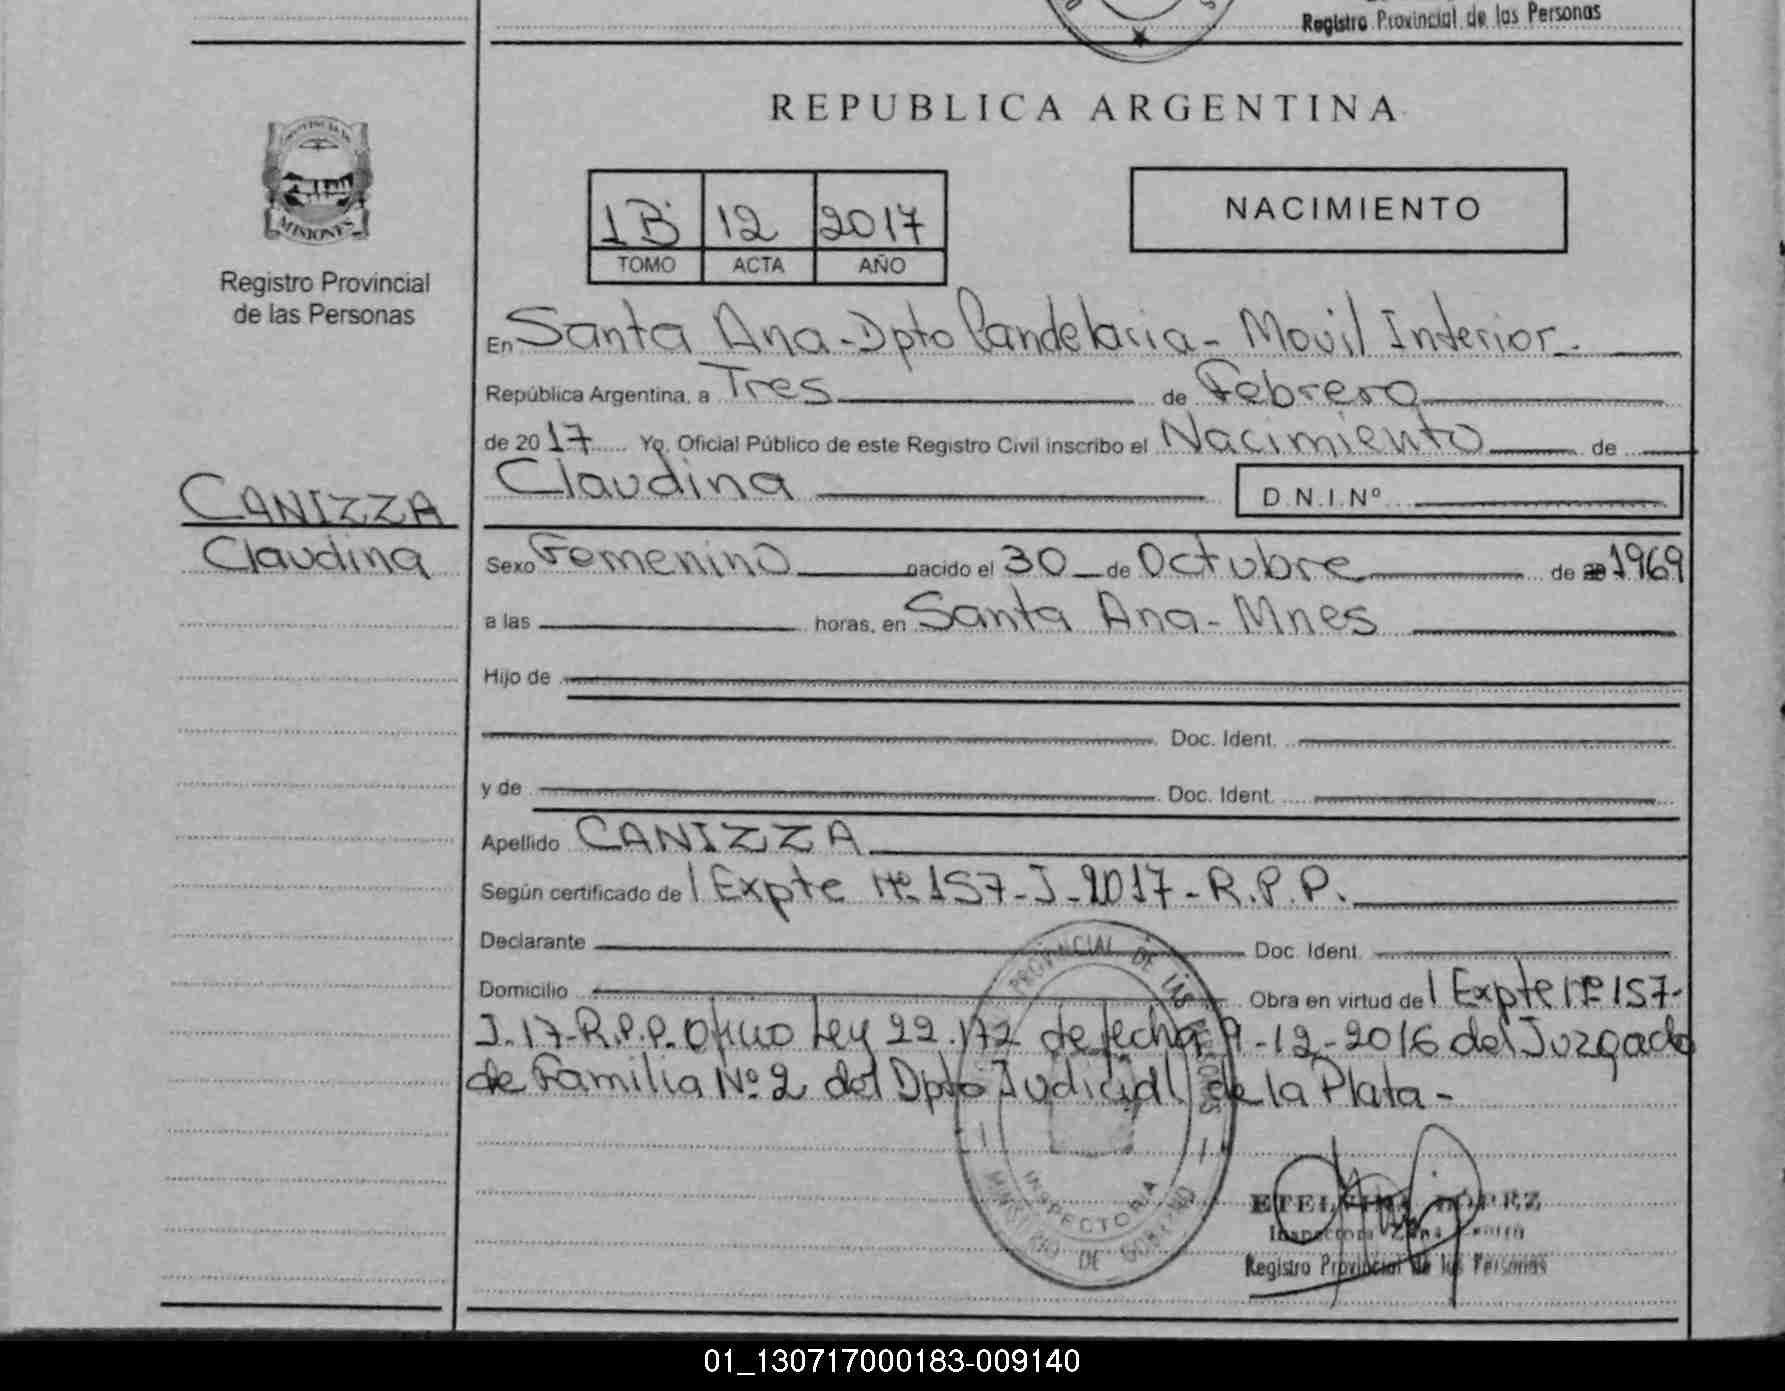 Registro Provincial de las Personas
REPUBLICA ARGENTINA
PROVINCIA DE
MISIONES
Registro Provincial
de las Personas
1B 12 2017
TOMO ACTA AÑO
NACIMIENTO
En Santa Ana - Dpto Candelaria - Movil Interior.
República Argentina, a Tres de Febrero
de 2017 Yo, Oficial Público de este Registro Civil inscribo el Nacimiento de
Claudina D.N.I.Nº
CANIZZA
Claudina
Sexo Femenino nacido el 30 de Octubre de 1969
a las horas, en Santa Ana - Mnes
Hijo de
Doc. Ident.
y de Doc. Ident.
Apellido CANIZZA
Según certificado de Expte Nº 157-J-2017-R.P.P.
Declarante Doc. Ident.
Domicilio Obra en virtud de Expte Nº 157-
J-17-R.P.P. Oficio Ley 22.172 de fecha 9-12-2016 del Juzgado
de Familia Nº 2 del Dpto Judicial de la Plata -
PROVINCIAL DE LAS PERSONAS
INSPECTORIA
MINISTERIO DE GOBIERNO
Inspectora Zona
Registro Provincial de las Personas
01_130717000183-009140